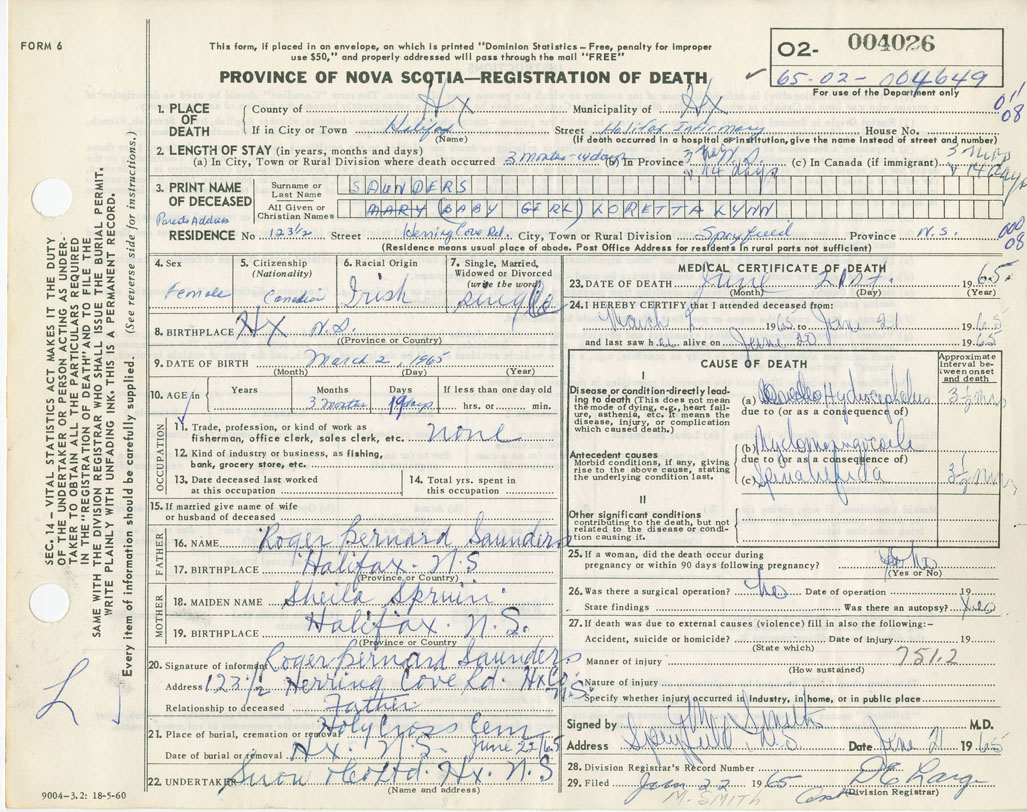 FORM 6
This form, if placed in an envelope, on which is printed "Dominion Statistics – Free, penalty for improper
use $50," and properly addressed will pass through the mail "FREE"
PROVINCE OF NOVA SCOTIA—REGISTRATION OF DEATH
O2- 004026
65-02-004649
For use of the Department only
011
08
1. PLACE OF DEATH County of Hx Municipality of Hx
If in City or Town Halifax Street Halifax Infirmary House No.
(Name) (If death occurred in a hospital or institution, give the name instead of street and number)
2. LENGTH OF STAY (in years, months and days)
(a) In City, Town or Rural Division where death occurred 3 months-14 days (b) In Province 14 days (c) In Canada (if immigrant) 14 days
3. PRINT NAME OF DECEASED Surname or Last Name SAUNDERS
All Given or Christian Names MARY (BABY GIRL) LORETTA LYNN
Parents Address
RESIDENCE No 123 1/2 Street Herring Cove Rd. City, Town or Rural Division Spryfield Province N.S.
000
08
(Residence means usual place of abode. Post Office Address for residents in rural parts not sufficient)
4. Sex Female
5. Citizenship (Nationality) Canadian
6. Racial Origin Irish
7. Single, Married, Widowed or Divorced (write the word) single
8. BIRTHPLACE Hx N.S.
(Province or Country)
9. DATE OF BIRTH March 2, 1965
(Month) (Day) (Year)
10. AGE in Years Months Days If less than one day old
3 months 19 days hrs. or min.
OCCUPATION
11. Trade, profession, or kind of work as
fisherman, office clerk, sales clerk, etc. none
12. Kind of industry or business, as fishing,
bank, grocery store, etc.
13. Date deceased last worked at this occupation
14. Total yrs. spent in this occupation
15. If married give name of wife
or husband of deceased
FATHER
16. NAME Roger Bernard Saunders
17. BIRTHPLACE Halifax. N.S
(Province or Country)
MOTHER
18. MAIDEN NAME Sheila
19. BIRTHPLACE Halifax. N.S.
(Province or Country)
20. Signature of informant Roger Bernard Saunders
Address 123 1/2 Herring Cove Rd. Hx Co. N.S.
Relationship to deceased Father
21. Place of burial, cremation or removal Holy Cross Cem
Date of burial or removal Hx. N.S. June 22/65
22. UNDERTAKER Snow & Co Ltd. Hx. N.S
(Name and address)
MEDICAL CERTIFICATE OF DEATH
23. DATE OF DEATH June 21st. 1965.
(Month) (Day) (Year)
24. I HEREBY CERTIFY that I attended deceased from:
March 2 1965 to June 21 1965
and last saw her alive on June 20 1965
CAUSE OF DEATH
Approximate interval between onset and death
I
Disease or condition directly leading to death (This does not mean the mode of dying, e.g., heart failure, asthenia, etc. It means the disease, injury, or complication which caused death.)
(a) Hydrocephalus 3 1/2 mos
due to (or as a consequence of)
Antecedent causes
Morbid conditions, if any, giving rise to the above cause, stating the underlying condition last.
(b) Myelomeningocoele
due to (or as a consequence of)
(c) Spina bifida 3 1/2 mos
II
Other significant conditions
contributing to the death, but not related to the disease or condition causing it.
25. If a woman, did the death occur during
pregnancy or within 90 days following pregnancy? No
(Yes or No)
26. Was there a surgical operation? No Date of operation 19
State findings Was there an autopsy?
27. If death was due to external causes (violence) fill in also the following:-
Accident, suicide or homicide? Date of injury 19
(State which)
Manner of injury 751.2
(How sustained)
Nature of injury
Specify whether injury occurred in industry, in home, or in public place
Signed by Smith M.D.
Address Spryfield, N.S Date June 21 1965
28. Division Registrar's Record Number
29. Filed June 22 1965
M. SMITH
(Division Registrar)
SEC. 14 – VITAL STATISTICS ACT MAKES IT THE DUTY
OF THE UNDERTAKER OR PERSON ACTING AS UNDER-
TAKER TO OBTAIN ALL THE PARTICULARS REQUIRED
IN THE "REGISTRATION OF DEATH" AND TO FILE THE
SAME WITH THE DIVISION REGISTRAR WHO SHALL ISSUE THE BURIAL PERMIT.
WRITE PLAINLY WITH UNFADING INK. THIS IS A PERMANENT RECORD.
Every item of information should be carefully supplied. (See reverse side for instructions.)
9004-3.2: 18-5-60